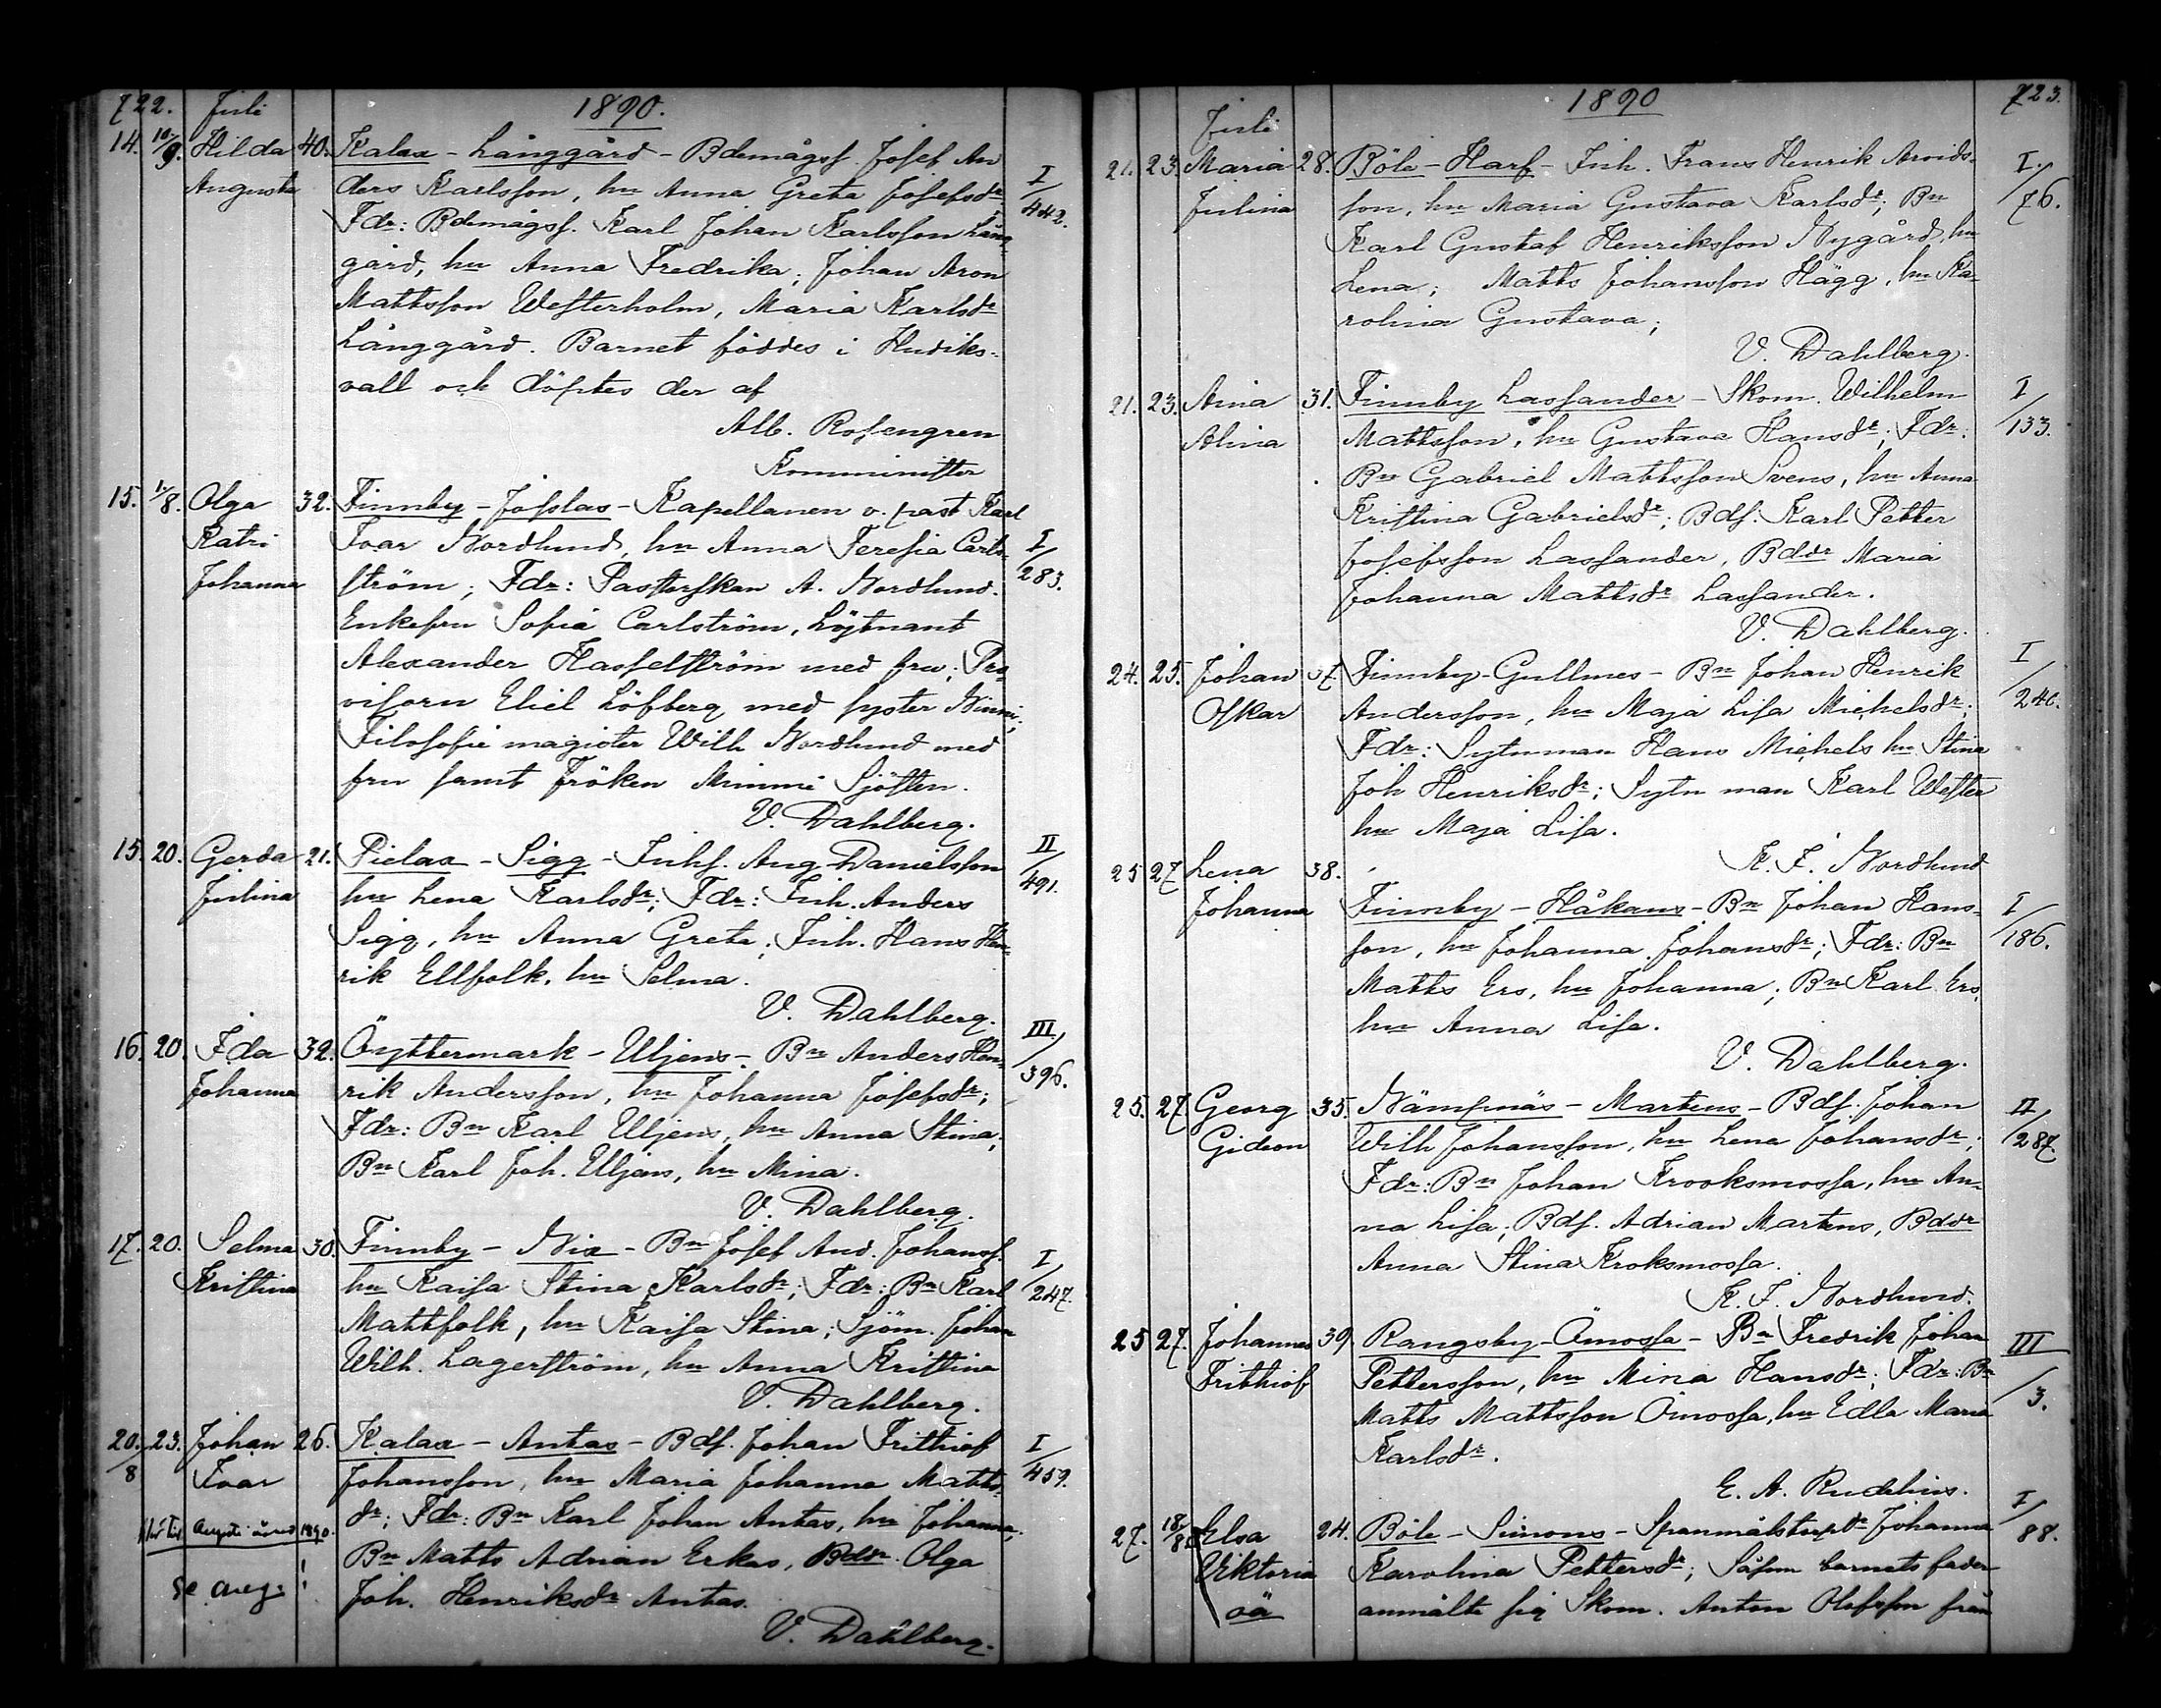 722. Juli 1890.
14. 10/9. Hilda 40. Kalax - Långgård - Bdemågsf. Josef An
Augusta ders Karlsson, hu Anna Greta Josefsdr I/442.
Fdr: Bdemågsf. Karl Johan Karlsson Lång-
gård, hu Anna Fredrika; Johan Aron
Mattsson Westerholm, Maria Karlsdr
Långgård. Barnet föddes i Hudiks-
vall och döptes der af
Alb. Rosengren
Komminister
15. 1./8. Olga 32. Finnby - Josslas - Kapellanen v. past Karl
Katri Ivar Nordlund, hu Anna Teresia Carl- I/283.
Johanna ström; Fdr: Pastorskan A. Nordlund.
Enkefru Sofia Carlström, Löjtnant
Alexander Hasselström med fru; Pro-
visorn Eliel Löfberg med syster Ninni;
Filosofie magister Wilh Nordlund med
fru samt Fröken Mimmi Sjösten.
V. Dahlberg.
15. 20. Gerda 21. Pielax - Sigg - Inhs. Aug Danielsson II/491.
Julina hu Lena Karlsdr; Fdr: Inh. Anders
Sigg, hu Anna Greta; Inh. Hans Hen-
rik Ellfolk, hu Selma.
V. Dahlberg.
16. 20. Ida 32. Öyttermark - Uljens - Bn Anders Hen- III/396.
Johanna rik Andersson, hu Johanna Josefsdr;
Fdr: Bn Karl Uljens, hu Anna Stina;
Bn Karl Joh. Uljens, hu Mina.
V. Dahlberg.
17. 20. Selma 30. Finnby - Nix - Bn Josef And. Johanss. I/247.
Kristina hu Kaisa Stina Karlsdr; Fdr: Bn Karl
Mattfolk, hu Kaisa Stina; Sjöm. Johan
Wilh. Lagerström, hu Anna Kristina
V. Dahlberg.
20./8 23. Johan 26. Kalax - Antas - Bdf. Johan Frithiof I/459.
Ivar Johansson, hu Maria Johanna Matts-
till Augusti månad 1890. dr; Fdr: Bn Karl Johan Antas, hu Johanna;
! Bn Matts Adrian Erkas, Bddr Olga
se aug: ! Joh. Henriksdr Antas.
V. Dahlberg.
Juli 1890 723.
21. 23. Maria 28. Böle - Harf - Inh. Frans Henrik Arvids- I./76.
Julina son, hu Maria Gustava Karlsdr; Bn
Karl Gustaf Henriksson Nygård, hu
Lena; Matts Johansson Hägg, hu Ka-
rolina Gustava;
V. Dahlberg.
21. 23. Aina 31. Finnby Lassander - Skom. Wilhelm I/133.
Alina Mattsson, hu Gustava Hansdr; Fdr:
Bn Gabriel Mattsson Svens, hu Anna
Kristina Gabrielsdr; Bdf. Karl Petter
Josefsson Lassander, Bddr Maria
Johanna Mattsdr Lassander.
V. Dahlberg.
24. 25. Johan 37. Finnby - Gullmes - Bn Johan Henrik I/240.
Oskar Andersson, hu Maja Lisa Michelsdr;
Fdr: Sytnman Hans Michels hu Stina
Joh Henriksdr; Sytn man Karl Wester
hu Maja Lisa.
K. I. Nordlund
25 27 Lena 38.
Johanna Finnby - Håkans - Bn Johan Hans- I/186.
son, hu Johanna Johansdr; Fdr: Bn
Matts Ers, hu Johanna; Bn Karl Ers,
hu Anna Lisa.
V. Dahlberg.
25. 27. Georg 35. Nämpnäs - Martens - Bdf. Johan II/287.
Gideon Wilh Johansson, hu Lena Johansdr;
Fdr: Bn Johan Krooksmossa, hu An-
na Lisa; Bdf. Adrian Martens, Bddr
Anna Stina Kroksmossa.
K. I. Nordlund.
25 27. Johannes 39. Rangsby - Ömossa - Bn Fredrik Johan III/3.
Frithiof Pettersson, hu Mina Hansdr; Fdr: Bn
Matts Mattsson Ömossa, hu Edla Maria
Karlsdr.
E. A. Rudelius.
27. 18/8 Elsa 24. Böle - Simons - Spanmålstorpdr Johanna I/88.
Viktoria Karolina Pettersdr; Såsom barnets fader
oä anmälte sig Skom. Anton Olofsson från